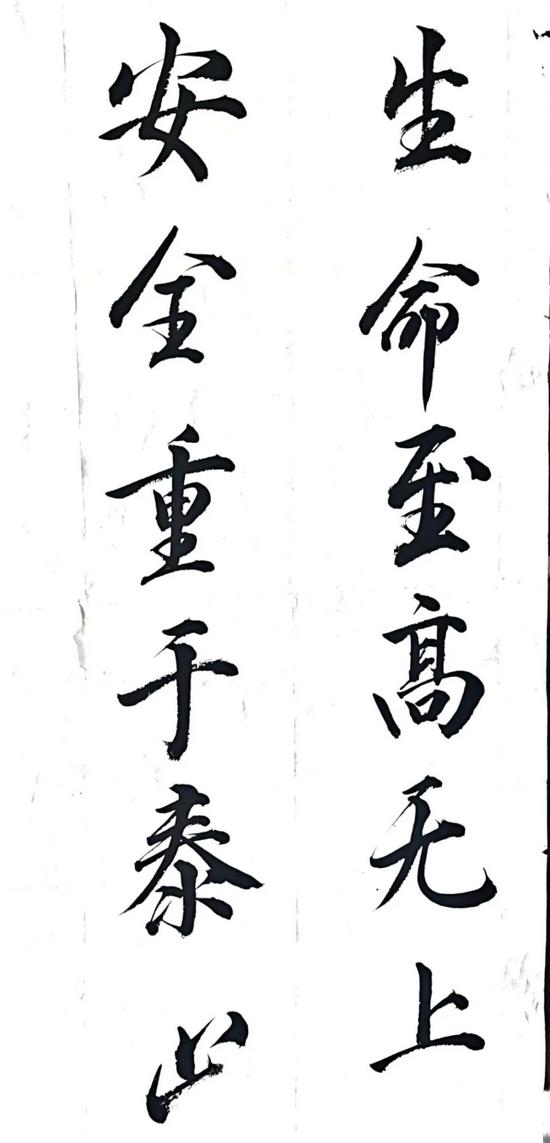 生命至高无上
安全重于泰山